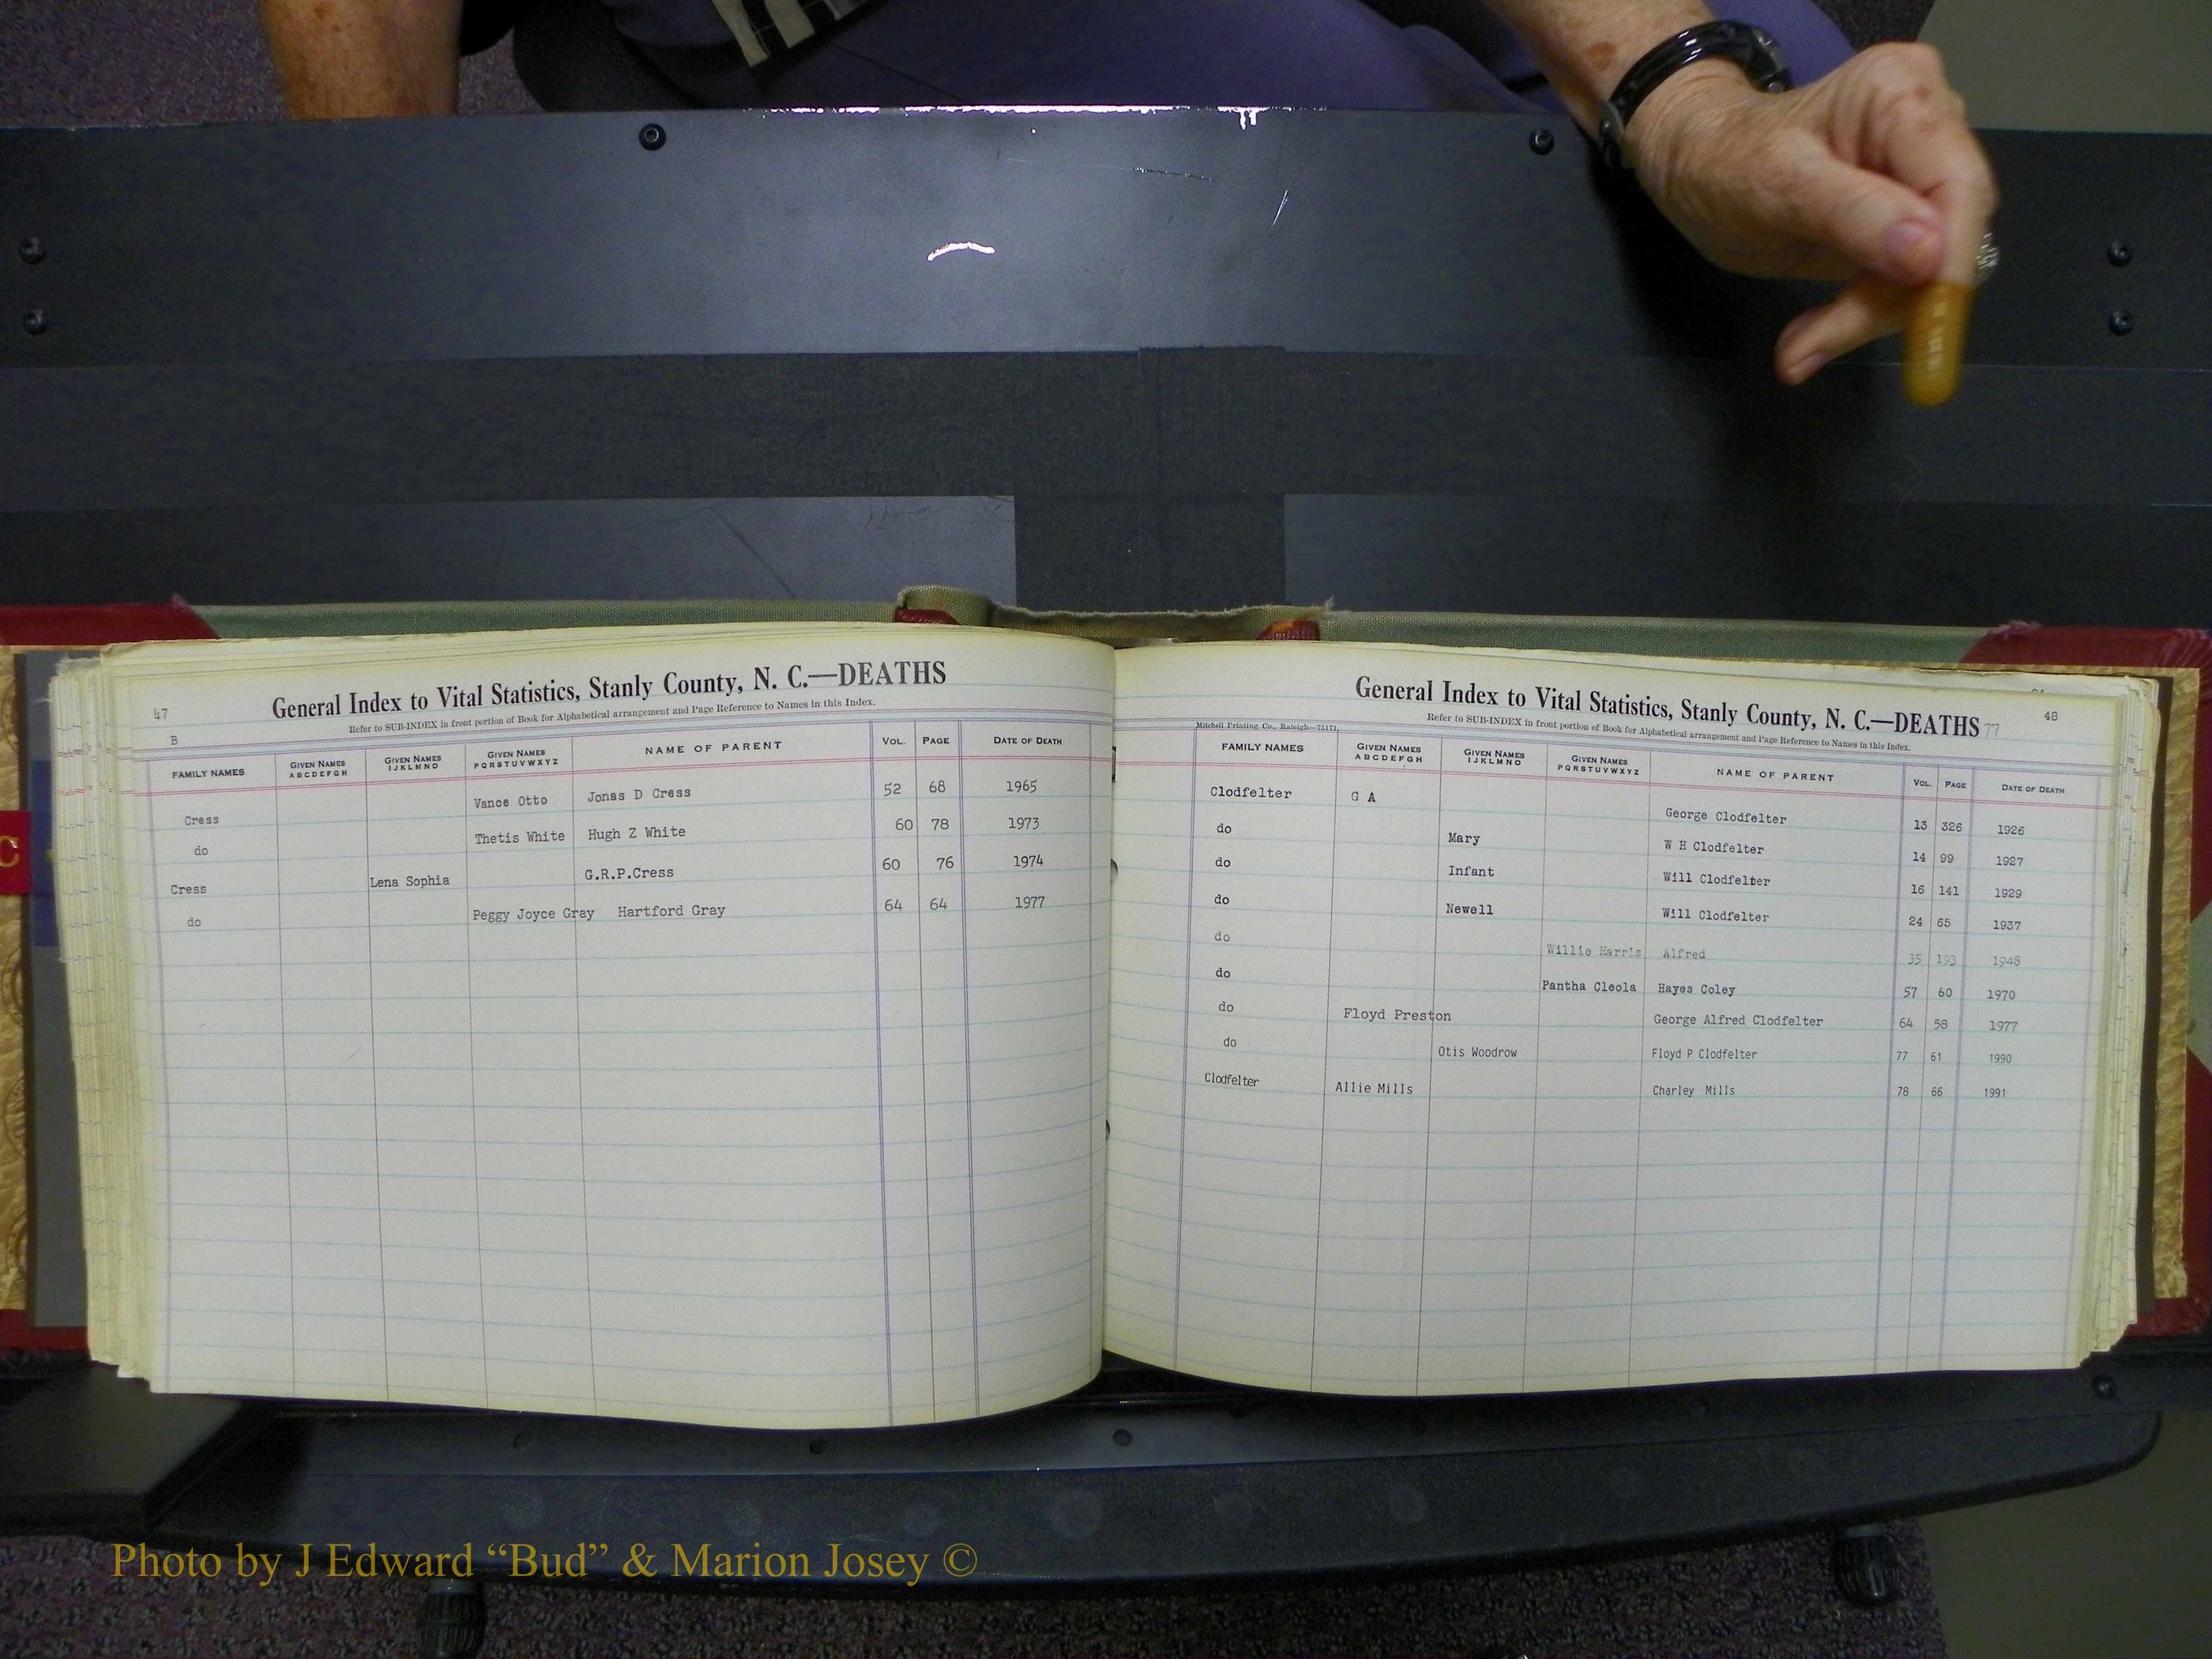 47
General Index to Vital Statistics, Stanly County, N. C.—DEATHS
Refer to SUB-INDEX in front portion of Book for Alphabetical arrangement and Page Reference to Names in this Index.
B
FAMILY NAMES GIVEN NAMES ABCDEFGH GIVEN NAMES IJKLMNO GIVEN NAMES PQRSTUVWXYZ NAME OF PARENT VOL. PAGE DATE OF DEATH
Cress Vance Otto Jonas D Cress 52 68 1965
do Thetis White Hugh Z White 60 78 1973
Cress Lena Sophia G.R.P.Cress 60 76 1974
do Peggy Joyce Gray Hartford Gray 64 64 1977
C
General Index to Vital Statistics, Stanly County, N. C.—DEATHS 77
48
Mitchell Printing Co., Raleigh—75171
Refer to SUB-INDEX in front portion of Book for Alphabetical arrangement and Page Reference to Names in this Index.
FAMILY NAMES GIVEN NAMES ABCDEFGH GIVEN NAMES IJKLMNO GIVEN NAMES PQRSTUVWXYZ NAME OF PARENT VOL. PAGE DATE OF DEATH
Clodfelter G A George Clodfelter 13 326 1926
do Mary W H Clodfelter 14 99 1927
do Infant Will Clodfelter 16 141 1929
do Newell Will Clodfelter 24 65 1937
do Willie Harris Alfred 35 193 1948
do Pantha Cleola Hayes Coley 57 60 1970
do Floyd Preston George Alfred Clodfelter 64 58 1977
do Otis Woodrow Floyd P Clodfelter 77 61 1990
Clodfelter Allie Mills Charley Mills 78 66 1991
Photo by J Edward “Bud” & Marion Josey ©